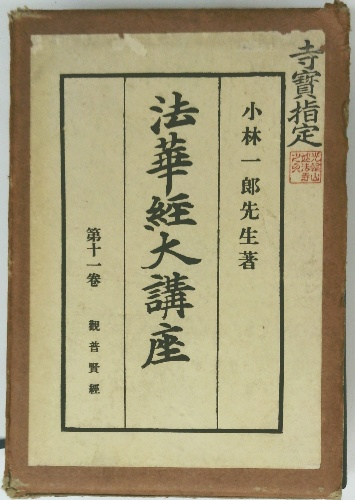 寺寶指定
小林一郎先生著
法華經大講座
第十一卷 觀普賢經